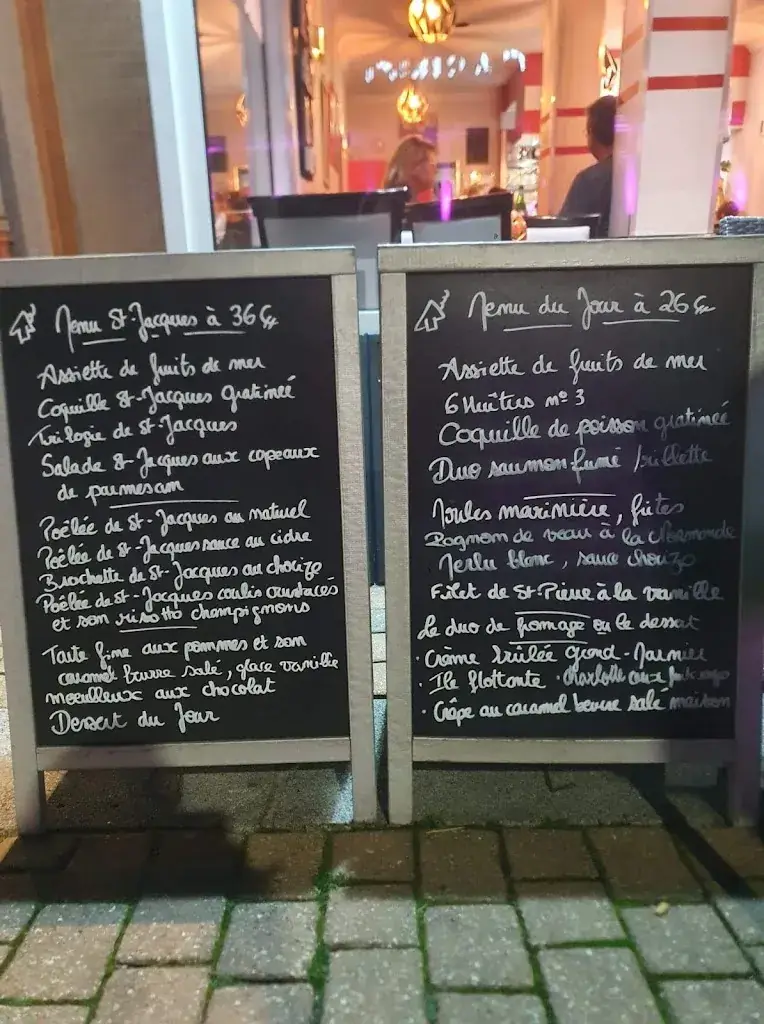 Menu St-Jacques à 36€
Assiette de fruits de mer
Coquille St-Jacques gratineé
Trilogie de St-Jacques
Salade St-Jacques aux copeaux
de parmesan
Poêlée de St-Jacques au naturel
Poêlée de St-Jacques sauce au cidre
Brochette de St-Jacques au chorizo
Poêlée de St-Jacques coulis crustacés
et son risotto champignons
Tarte fine aux pommes et son
caramel beurre salé, glace vanille
moelleux aux chocolat
Dessert du Jour
Menu du Jour à 26€
Assiette de fruits de mer
6 Huîtres n° 3
Coquille de poisson gratineé
Duo saumon fumé / rillette
Moules marinière, frites
Rognom de veau à la Normande
Merlu blanc, sauce chorizo
Filet de St-Pierre à la vanille
Le duo de fromage ou le dessert
• Crème brûlée grand-Marnier
• Ile flottante • Charlotte aux fruits rouges
• Crêpe au caramel beurre salé maison